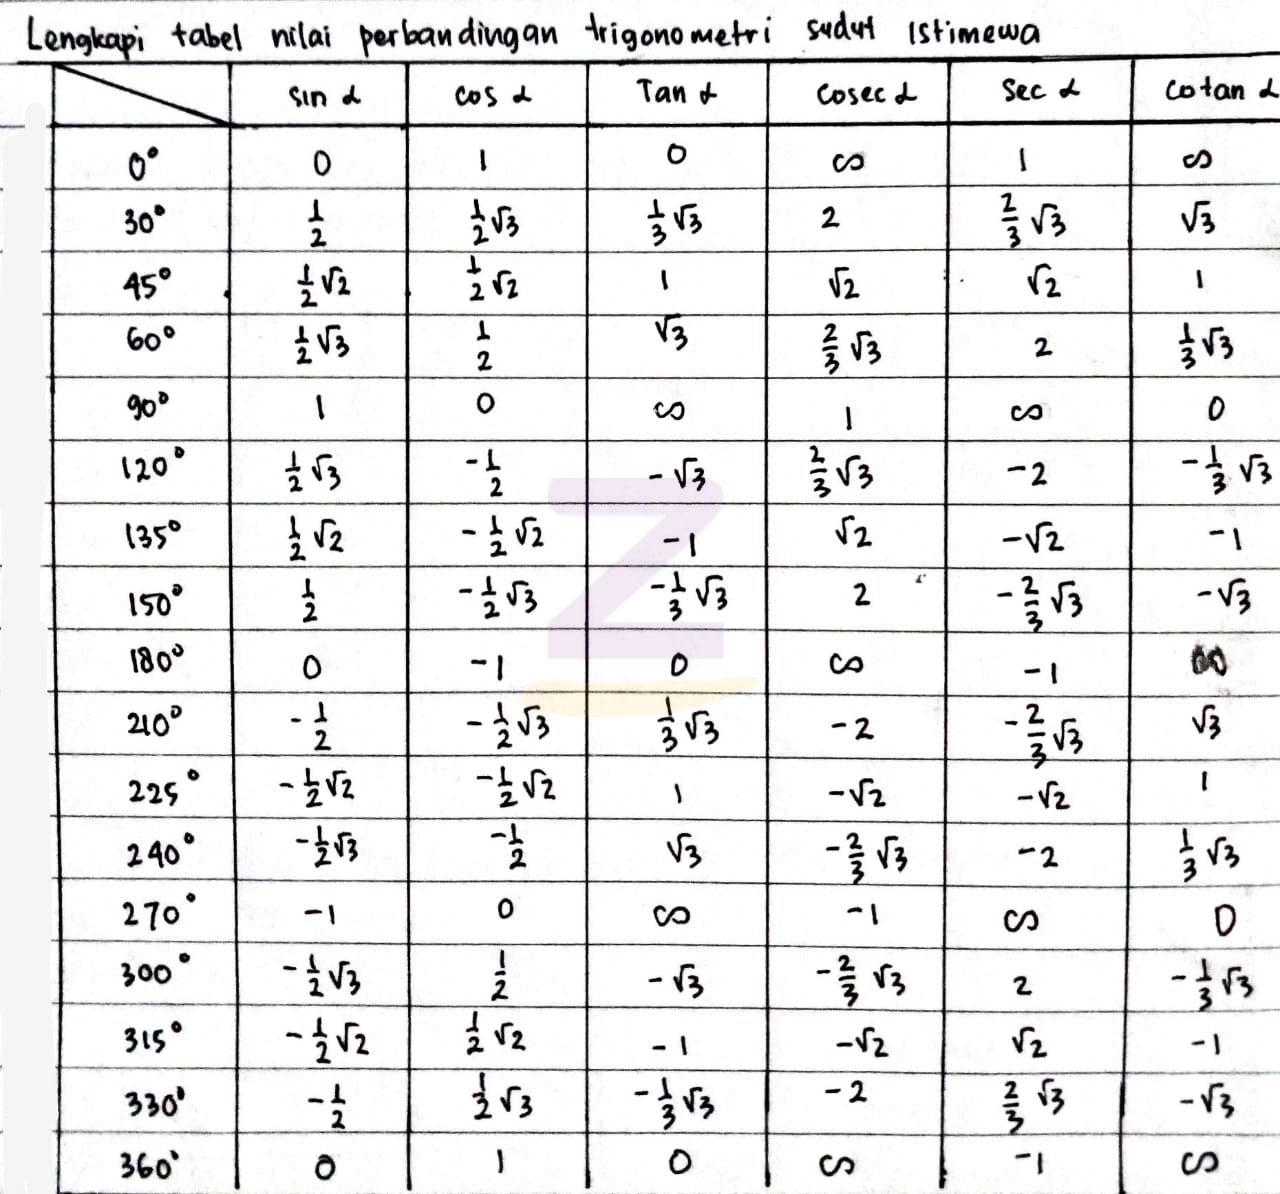 Lengkapi tabel nilai perbandingan trigonometri sudut Istimewa
sin α cos α Tan α Cosec α Sec α cotan α
0° 0 1 0 ∞ 1 ∞
30° 1/2 1/2√3 1/3√3 2 2/3√3 √3
45° 1/2√2 1/2√2 1 √2 √2 1
60° 1/2√3 1/2 √3 2/3√3 2 1/3√3
90° 1 0 ∞ 1 ∞ 0
120° 1/2√3 -1/2 -√3 2/3√3 -2 -1/3√3
135° 1/2√2 -1/2√2 -1 √2 -√2 -1
150° 1/2 -1/2√3 -1/3√3 2 -2/3√3 -√3
180° 0 -1 0 ∞ -1 ∞
210° -1/2 -1/2√3 1/3√3 -2 -2/3√3 √3
225° -1/2√2 -1/2√2 1 -√2 -√2 1
240° -1/2√3 -1/2 √3 -2/3√3 -2 1/3√3
270° -1 0 ∞ -1 ∞ 0
300° -1/2√3 1/2 -√3 -2/3√3 2 -1/3√3
315° -1/2√2 1/2√2 -1 -√2 √2 -1
330° -1/2 1/2√3 -1/3√3 -2 2/3√3 -√3
360° 0 1 0 ∞ -1 ∞
Z